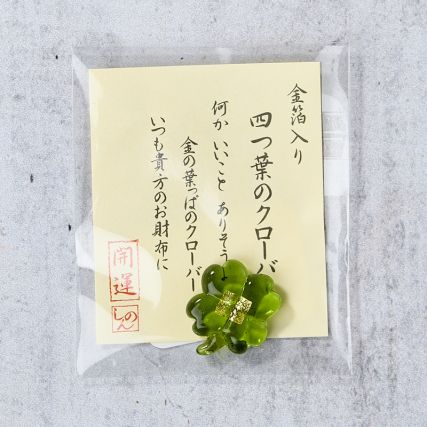 金箔入り
四つ葉のクローバ
何か いいこと ありそう
金の葉っぱのクローバー
いつも貴方のお財布に
開運
しのん